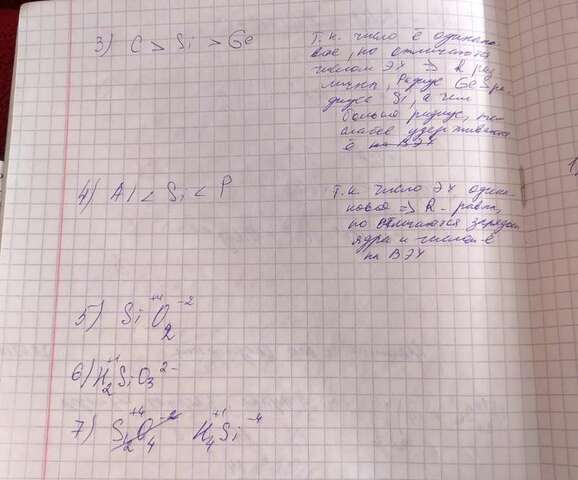 3) C > Si > Ge
Т.к. число ē одинако-
вое, но отличаются
числом ЭУ ⇒ R раз-
личны, Радиус Ge > ра-
диуса Si, а чем
больше радиус, тем
слабее удерживаются
ē на ВЭУ
4) Al < Si < P
Т.к. число ЭУ одина-
ковое ⇒ R - равны,
но отличаются зарядом
ядра и числом ē
на ВЭУ
5) Si⁺⁴O₂⁻²
6) H₂⁺¹SiO₃²⁻
7) Si₂⁺⁴O₄⁻² H₄⁺¹Si⁻⁴
1)